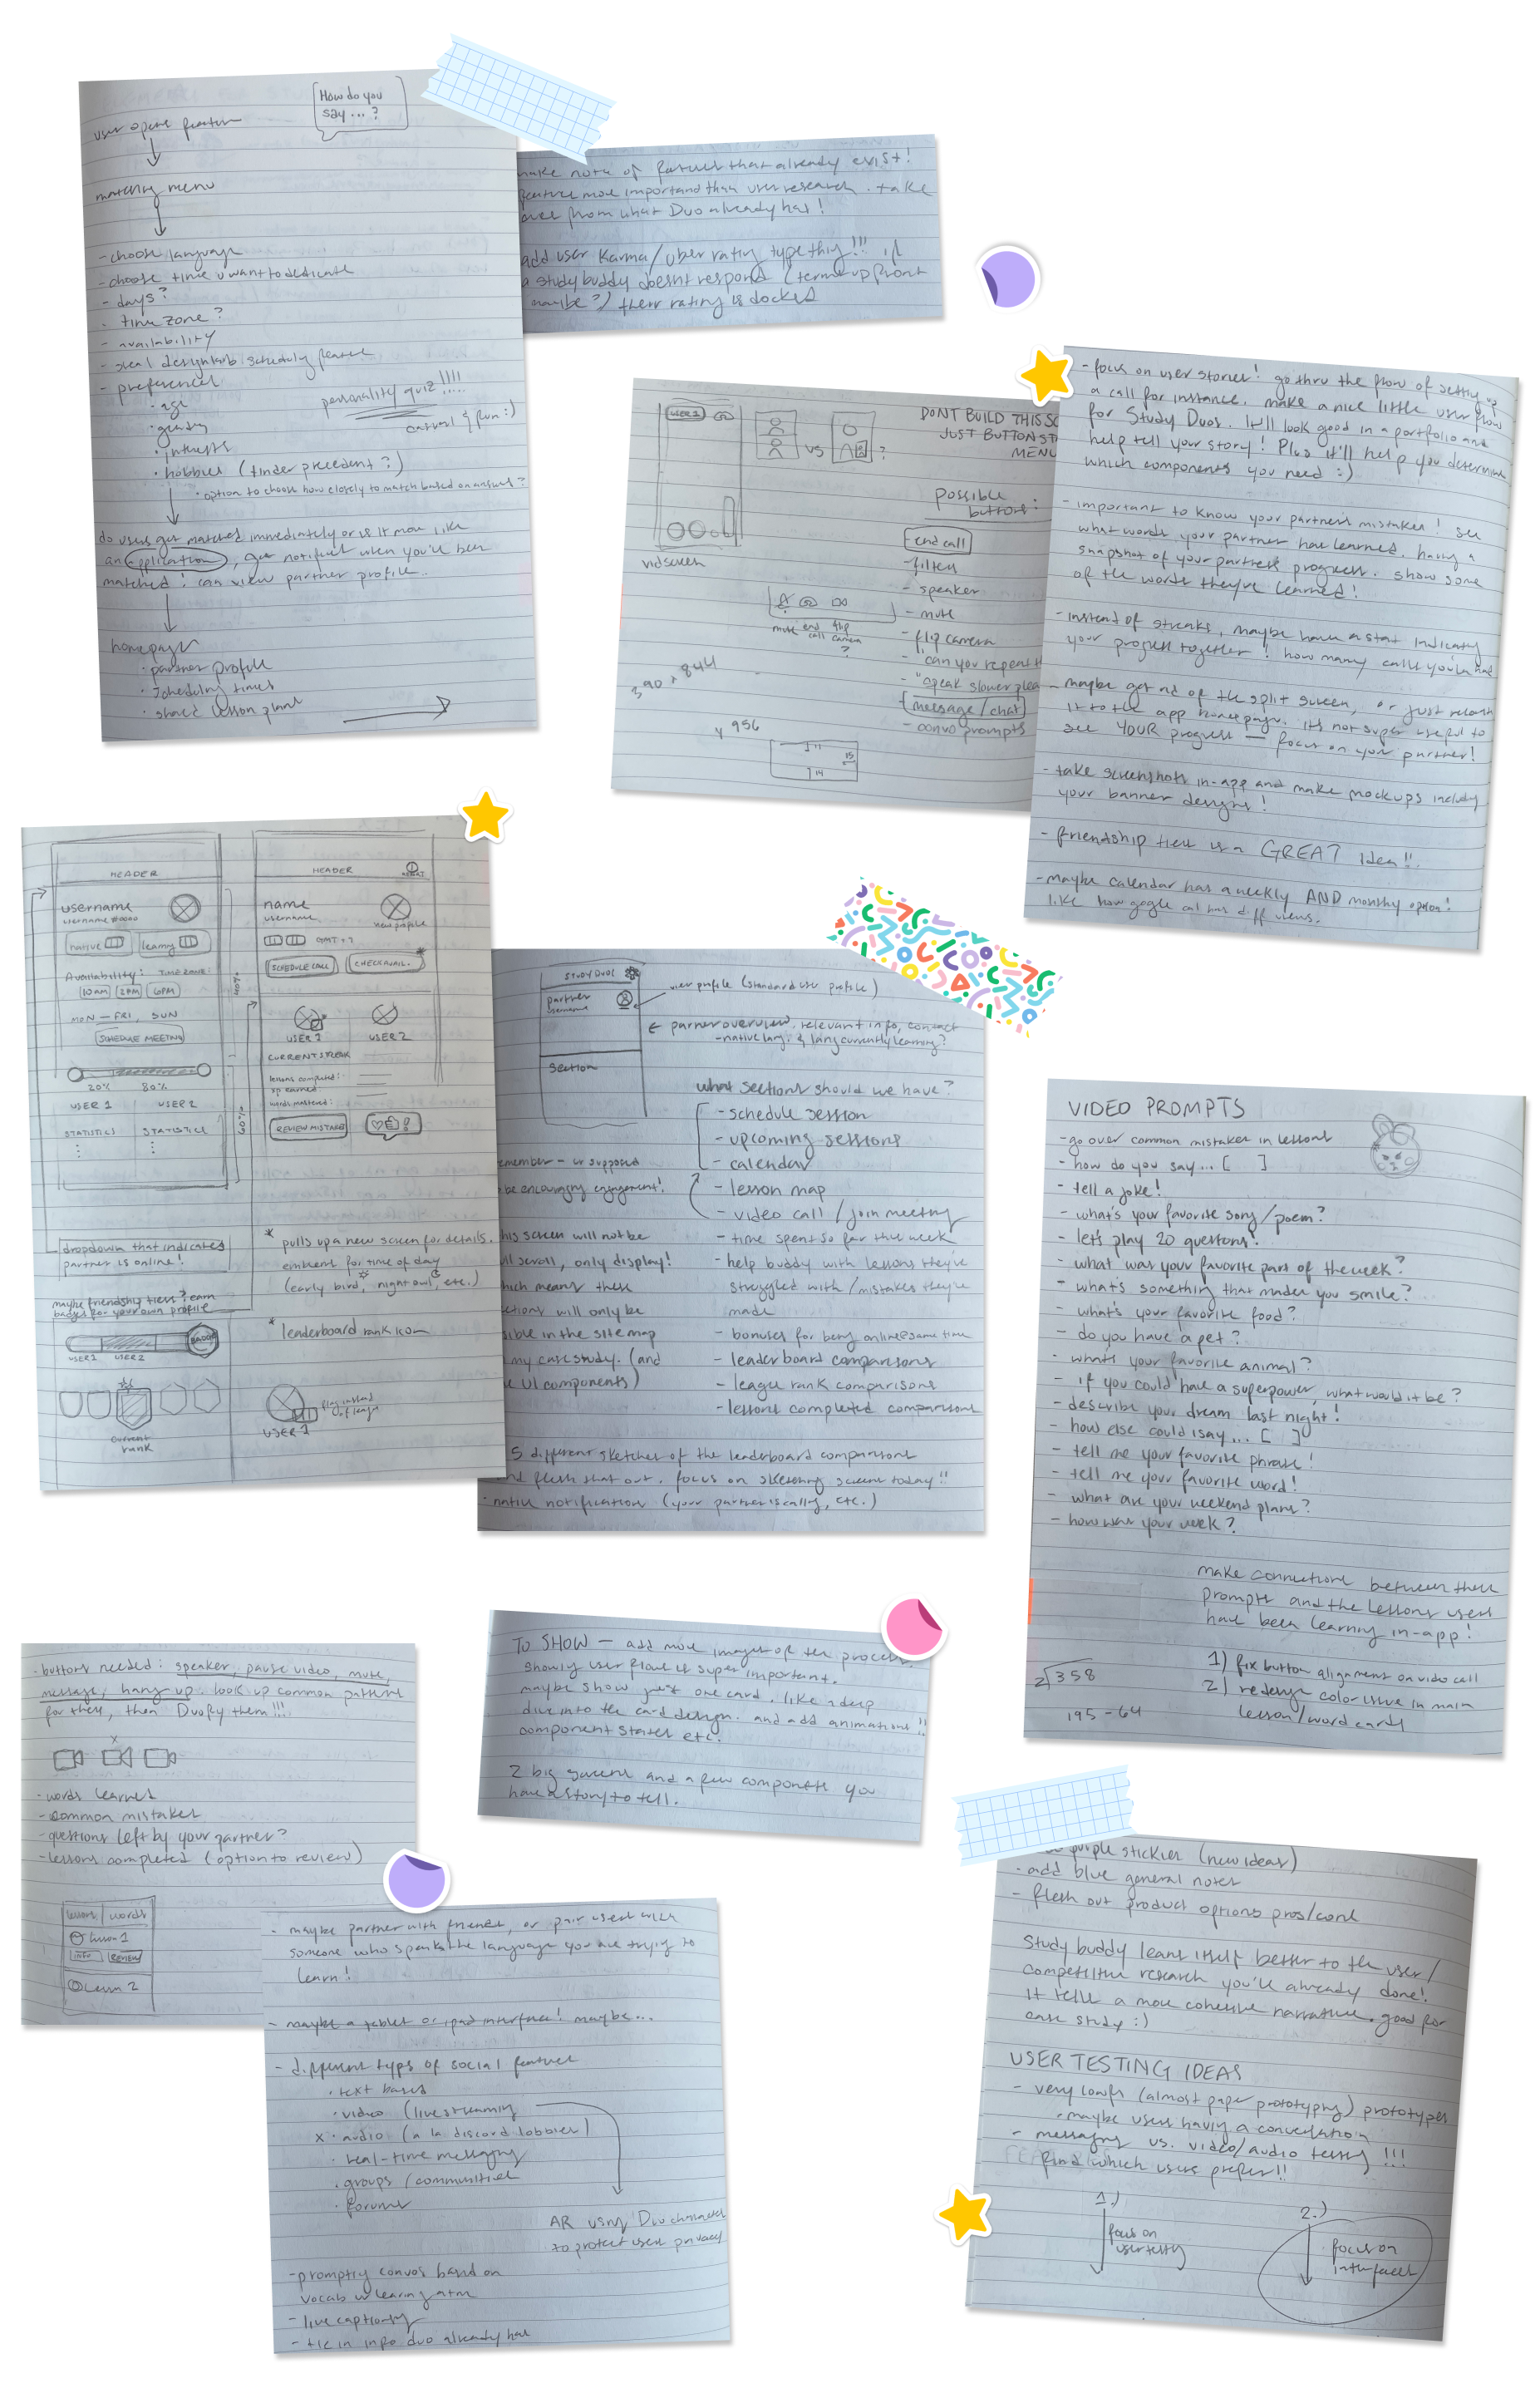 How do you
say ... ?
user opens feature
matching menu
- choose language
- choose time u want to dedicate
- days?
- time zone?
- availability
- steal designlab scheduling feature
- preferences
• age
• gender
• interests
• hobbies (tinder precedent?)
• option to choose how closely to match based on answers?
personality quiz!!!!
casual & fun :)
do users get matched immediately or is it more like
an application, get notified when you've been
matched! can view partner profile..
homepage
• partner profile
• scheduling times
• shared lesson plans
make note of features that already exist!
feature more important than user research. take
over from what Duo already has!
add user karma/uber rating type thing!!! if
a study buddy doesnt respond (terms up front
maybe?) their rating is docked
USER 1
VS
?
vid screen
mute
end call
flip camera
?
390 x 844
DONT BUILD THIS SC
JUST BUTTON ST
MENU
possible
buttons:
end call
- filters
- speaker
- mute
- flip camera
- "can you repeat th
- "speak slower plea
message/chat
- convo prompts
956
- focus on user stories! go thru the flow of setting up
a call for instance. make a nice little user flow
for Study Duos. It'll look good in a portfolio and
help tell your story! Plus it'll help you determine
which components you need :)
- important to know your partner's mistakes! see
what words your partner has learned. having a
snapshot of your partner's progress. show some
of the words they've learned!
- instead of streaks, maybe have a stat indicating
your progress together! how many calls you've had
- maybe get rid of the split screen, or just relocate
it to the app homepage. its not super useful to
see YOUR progress — focus on your partner!
- take screenshots in-app and make mockups including
your banner designs!
- friendship tiers is a GREAT idea!!
- maybe calendar has a weekly AND monthly option!
like how google cal has diff views.
HEADER
username
username #0000
native
learning
Availability:
TIME ZONE:
10AM
2PM
6PM
MON — FRI, SUN
SCHEDULE MEETING
20%
80%
USER 1
USER 2
STATISTICS
STATISTICS
40%
60%
HEADER
name
username
view profile
GMT + 7
SCHEDULE CALL
CHECK AVAIL.
*
USER 1
USER 2
CURRENT STREAK
lessons completed:
xp earned:
words mastered:
REVIEW MISTAKES
dropdown that indicates
partner is online!
* pulls up a new screen for details.
emblem for time of day
(early bird, night owl, etc.)
maybe friendship tiers? earn
badges for your own profile
USER 1
USER 2
BADGE
* leaderboard rank icon
current
rank
flag instead
of league
USER 1
STUDY DUOS
partner
username
view profile (standard user profile)
partner overview. relevant info, contact
- native lang. & lang currently learning?
section
what sections should we have?
- schedule session
- upcoming sessions
- calendar
- lesson map
- video call / join meeting
- time spent so far this week
- help buddy with lessons they've
struggled with/mistakes they've
made
- bonuses for being online @ same time
- leaderboard comparisons
- league rank comparisons
- lessons completed comparisons
emember - ur supposed
be encouraging engagement!
his screen will not be
ll scroll, only display!
hich means these
ctions will only be
sible in the site map
my case study. (and
e UI components)
5 different sketches of the leaderboard comparisons
nd flesh that out. focus on sketching screens today!!
• native notification (your partner is calling, etc.)
VIDEO PROMPTS
- go over common mistakes in lessons
- how do you say... [ ]
- tell a joke!
- what's your favorite song/poem?
- let's play 20 questions!
- what was your favorite part of the week?
- what's something that made you smile?
- what's your favorite food?
- do you have a pet?
- whats your favorite animal?
- if you could have a superpower, what would it be?
- describe your dream last night!
- how else could i say... [ ]
- tell me your favorite phrase!
- tell me your favorite word!
- what are your weekend plans?
- how was your week?
make connections between these
prompts and the lessons users
have been learning in-app!
1) fix button alignment on video call
2) redesign color issue in main
lesson/word cards
2)358
195 - 64
- buttons needed: speaker, pause video, mute,
message, hang up. look up common patterns
for these, then Duofy them!!!
x
- words learned
- common mistakes
- questions left by your partner?
- lessons completed (option to review)
lessons
words
lesson 1
INFO
REVIEW
Lesson 2
TO SHOW — add more images of the process.
showing user flows is super important.
maybe show just one card. like a deep
dive into the card design. and add animations!!
component states etc.
2 big screens and a few components you
have a story to tell.
- maybe partner with friends, or pair users with
someone who speaks the language you are trying to
learn!
- maybe a tablet or ipad interface! maybe...
- different types of social feature
• text based
• video (livestreaming
x • audio (a la discord lobbies)
• real-time messaging
• groups/communities
• forums
AR using Duo characters
to protect users privacy
- prompting convos based on
vocab ur learning atm
- live captioning
- tie in info duo already has
purple stickies (new ideas)
- add blue general notes
- flesh out product options pros/cons
Study buddy leans itself better to the user/
competitive research you've already done!
it tells a more cohesive narrative. good for
case study :)
USER TESTING IDEAS
- very lowfi (almost paper prototyping) prototypes
• maybe users having a conversation
- messaging vs. video/audio testing!!!
find which users prefer!!
1.)
focus on
user testing
2.)
focus on
interfaces